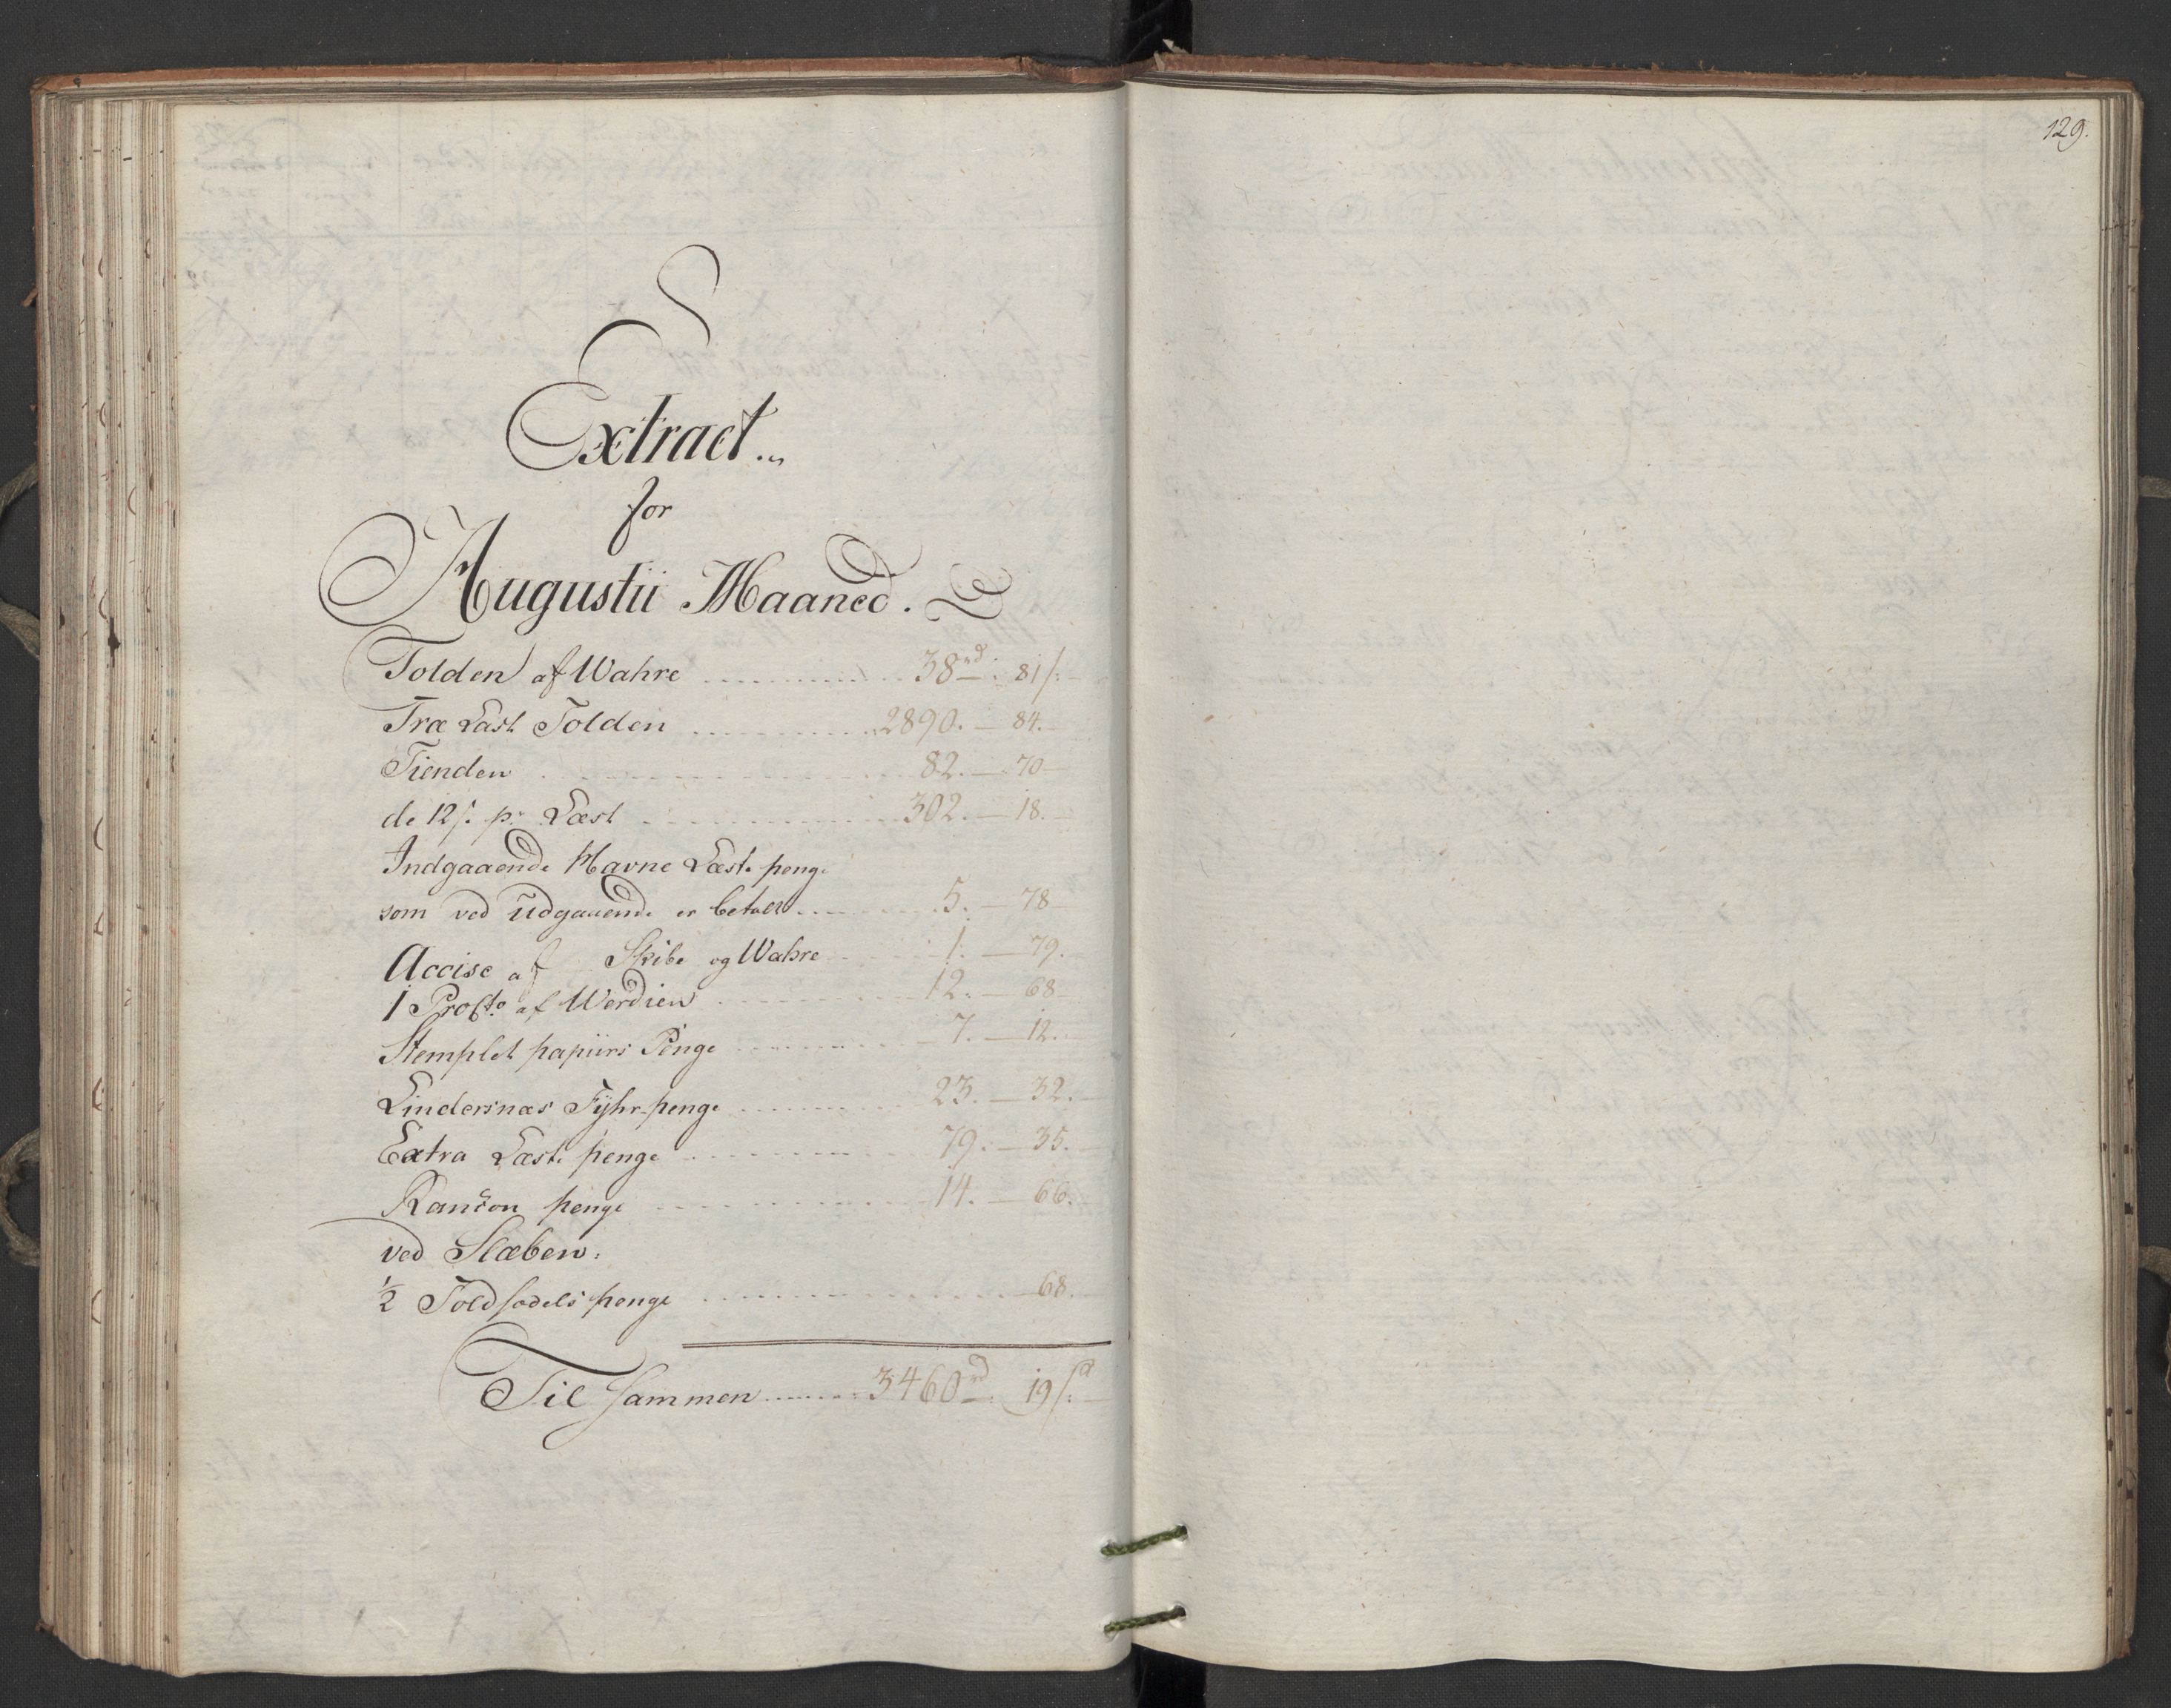 129.
Extract
for
Augustii Maaned.
Tolden af Wahre 38rd: 81/:
Træ Last Tolden 2890. — 84.
Tienden 82. — 70
de 12/: pr. Læst 302. — 18.
Indgaaende Havne Læste penge
som ved Udgaaende er betalt 5. — 78
Accise af Skibe og Wahre 1. — 79.
1 Procto af Werdien 12. — 68
Stemplet papiirs Penge 7. — 12.
Lindersnæs Fyhr penge 23. — 32.
Extra Læste penge 79. — 35.
Ranzon penge 14. — 66.
ved Slæben:
1/2 Toldsedels penge 68.
Til sammen 3460rd: 19/: